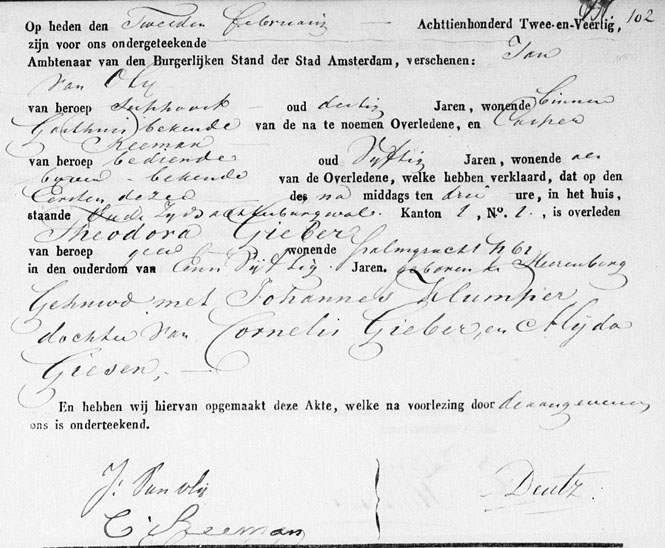 102
Op heden den Tweeden Februarij Achttienhonderd Twee-en-Veertig,
zijn voor ons ondergeteekende
Ambtenaar van den Burgerlijken Stand der Stad Amsterdam, verschenen: Jan
van Olij
van beroep Suppoost oud dertig Jaren, wonende binnen
Gasthuis bekende van de na te noemen Overledene, en Casper
Reeman
van beroep bediende oud Vijftig Jaren, wonende als
boven - bekende van de Overledene, welke hebben verklaard, dat op den
Eersten dezer des na middags ten drie ure, in het huis,
staande Oude Zijds achterburgwal. Kanton 1, No. 1. is overleden
Theodora Gieber
van beroep geen wonende palmgracht N 61
in den ouderdom van Een Vijftig Jaren. geboren te Heerenberg
Gehuwd met Johannes Klumper
dochter van Cornelis Gieber, en Alyda
Giesen,
En hebben wij hiervan opgemaakt deze Akte, welke na voorlezing door de aangevenen
ons is onderteekend.
J: Van olij
C: Reeman
Deutz.